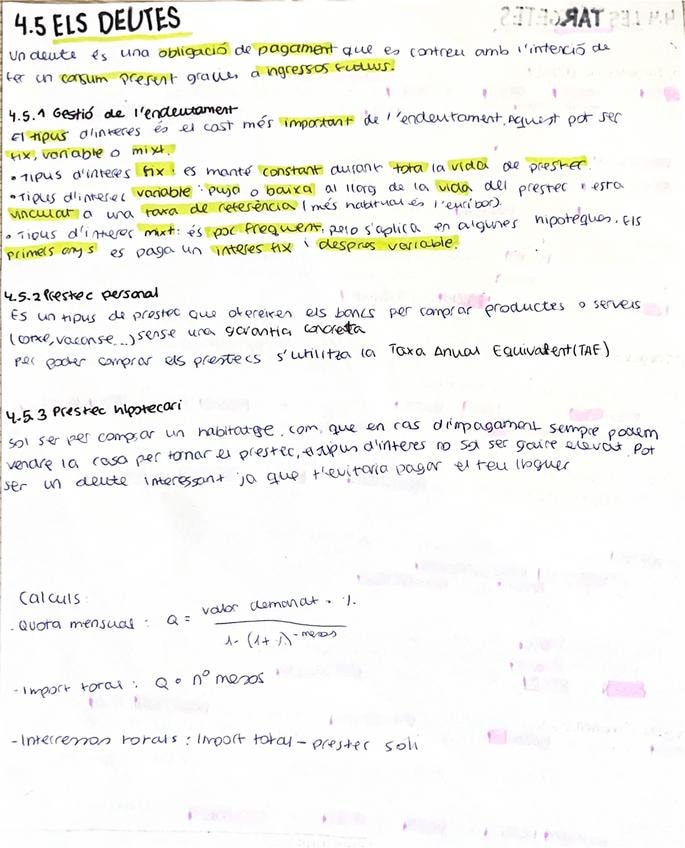 4.5 ELS DEUTES
Un deute és una obligació de pagament que es contreu amb l'intenció de
fer un consum present gracies a ingressos futurs.
4.5.1 Gestió de l'endeutament
El tipus d'interes és el cost més important de l'endeutament. Aquest pot ser
fix, variable o mixt.
• Tipus d'interes fix: es manté constant durant tota la vida de prestec.
• Tipus d'interes variable: puja o baixa al llarg de la vida del prestec i esta
vinculat a una taxa de referència (més habitual és l'euribor).
• Tipus d'interes mixt: és poc frequent, pero s'aplica en algunes hipotèques. Els
primers anys es paga un interes fix i despres variable.
4.5.2 Prestec personal
És un tipus de prestec que ofereixen els bancs per comprar productes o serveis
(cotxe, vacanse...) sense una garantia concreta
Per poder comprar els prestecs s'utilitza la Taxa Anual Equivalent (TAE)
4.5.3 Prestec hipotecari
Sol ser per comprar un habitatge. com que en cas d'impagament sempre podem
vendre la casa per tornar el prestec, el tipus d'interes no sol ser gaire elevat. Pot
ser un deute interessant ja que t'evitaria pagar el teu lloguer
Calculs:
. Quota mensual: Q = valor demanat · i.
1 - (1+i)^-mesos
- Import total: Q • nº mesos
- Interessos totals: Import total - prestec soli